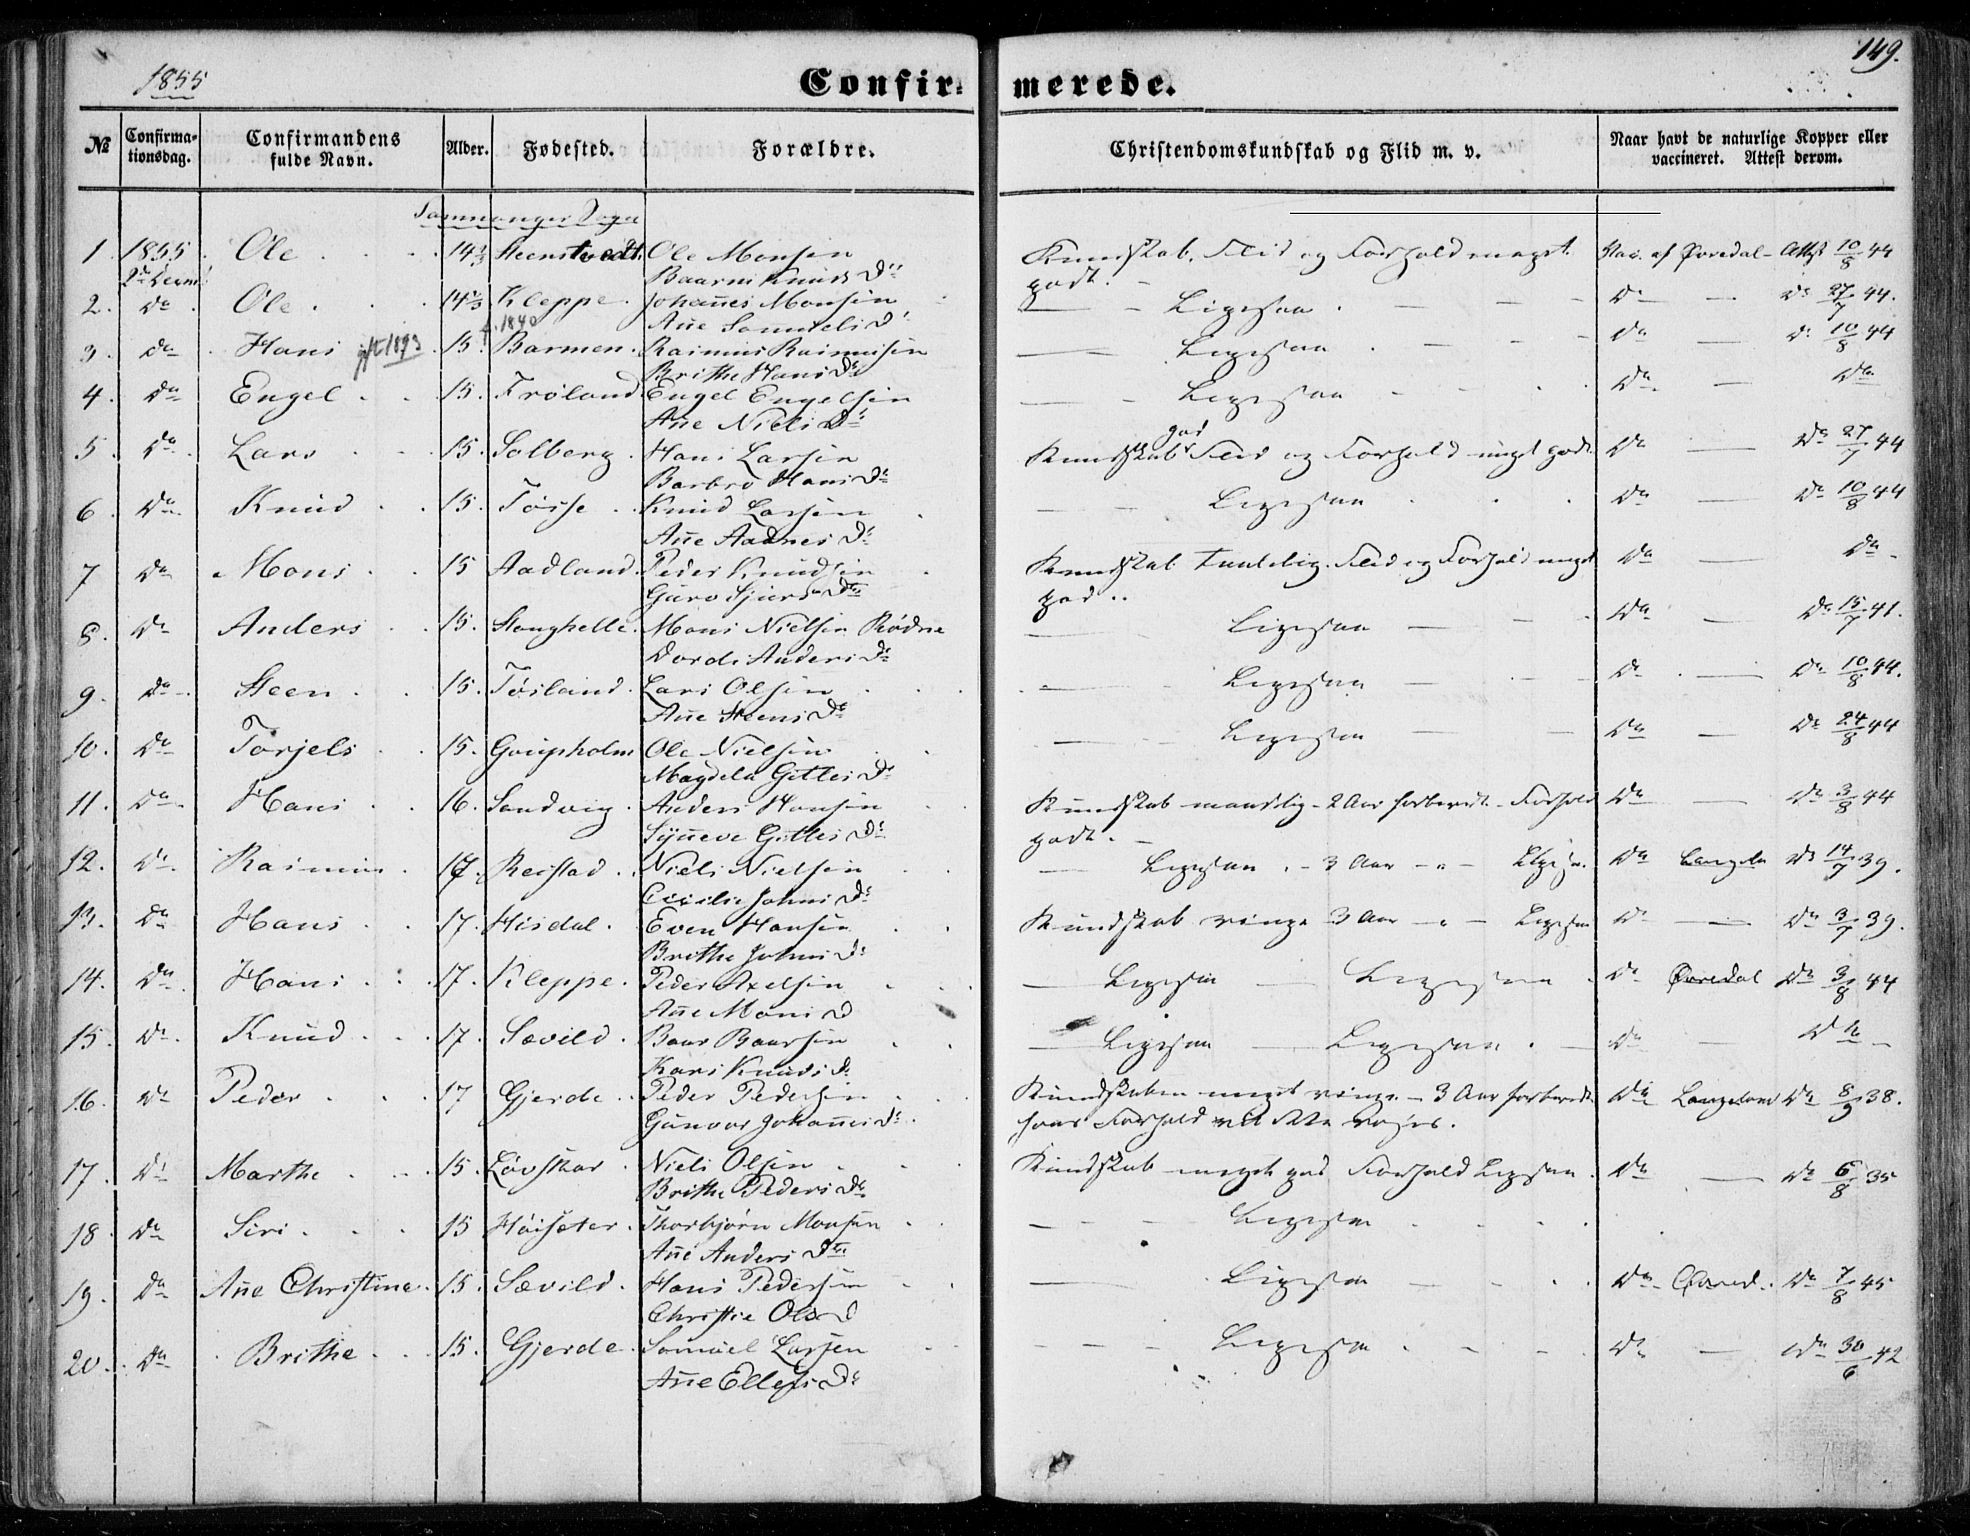 149.
1855
Confir- merede.
№ Confirma-tionsdag. Confirmandens fulde Navn. Alder. Fødested. Forældre. Christendomskundskab og Flid m. v. Naar havt de naturlige Kopper eller vaccineret. Attest derom.
Samnanger Sogn
1. 1855 Ole 14½ Steensvedt Ole Monsen Kundskab, Flid og Forhold meget Vac. af Attest 10/8 44
Baarni Knuds Dr godt.
2. Do Ole 14½ Kleppe Johanes Monsen Ligesaa Do Do 27/7 44.
f. 1840 Añe Samuels D
3. Do Hans gft 1893 15. Barmen Rasmus Rasmusen Ligesaa Do Do 10/8 44
Brithe Hans Dr
4. Do Engel 15. Frøland Engel Engelsen Ligesaa Do Do
Añe Niels Dr
5. Do Lars 15. Solberg Hans Larsen Kundskab god Flid og Forhold meget godt Do Do 27/7 44
Barbro Hans Dr
6. Do Knud 15. Tøsse Knud Larsen Ligesaa Do Do 10/8 44
Añe Aadnes Dr
7 Do Mons 15 Aadland Peder Knudsen Kundskab taalelig. Flid og Forhold meget Do Do
Guro Sjurs Dr god
8. Do Anders 15. Stenghelle Mons Nielsen Rødne Ligesaa Do Do 15/7 41.
Dorde Anders Dr
9. Do Steen 15. Tøsland Lars Olsen Ligesaa Do Do 10/8 44.
Añe Steens Dr
10. Do Torjels 15. Ole Nielsen Ligesaa Do Do 24/8 44
Magdela Gitles Dr
11. Do Hans 16. Sandvig Anders Hansen Kundskab maadelig - 2 Aar forberedt - Forhold Do Do 3/8 44
Syñeve Gitles Dr godt.
12. Do Rasmus 16. Reistad Niels Nielsen Ligesaa - 3 Aar - " - Ligesaa Do Do 14/7 39.
Cicilie Johns Dr
13. Do Hans 17. Hisdal Even Hansen Kundskab ringe 3 Aar - " - Ligesaa Do Do 3/7 39.
Brithe Johns Dr
14. Do Hans 17. Kleppe Peder Axelsen Ligesaa Ligesaa Do Do 3/8 44
Añe Mons D
15. Do Knud 17. Sævild Baar Baarsen Ligesaa Ligesaa Do Do
Kari Knuds Dr
16. Do Peder 17 Gjerde Peder Pedersen Kundskaben meget ringe - 3 Aar forberedt Do Langeland Do 8/9 38.
Gunvor Johannes Dr Forhold
17. Do Marthe 15. Løvskar Niels Olsen Kundskab meget god Forhold Ligesaa Do Do 6/8 35
Brithe Peders Dr
18 Do Siri 15 Høisæter Thorbjørn Monsen Ligesaa
Añe Anders Dr
19. Do Añe Christine 15. Sævild Hans Pedersen Ligesaa Do Do 7/8 45
Christie Ols D
20. Do Brithe 15. Gjerde Samuel Larsen Ligesaa Do Do 30/6 42
Añe Ellefs Dr